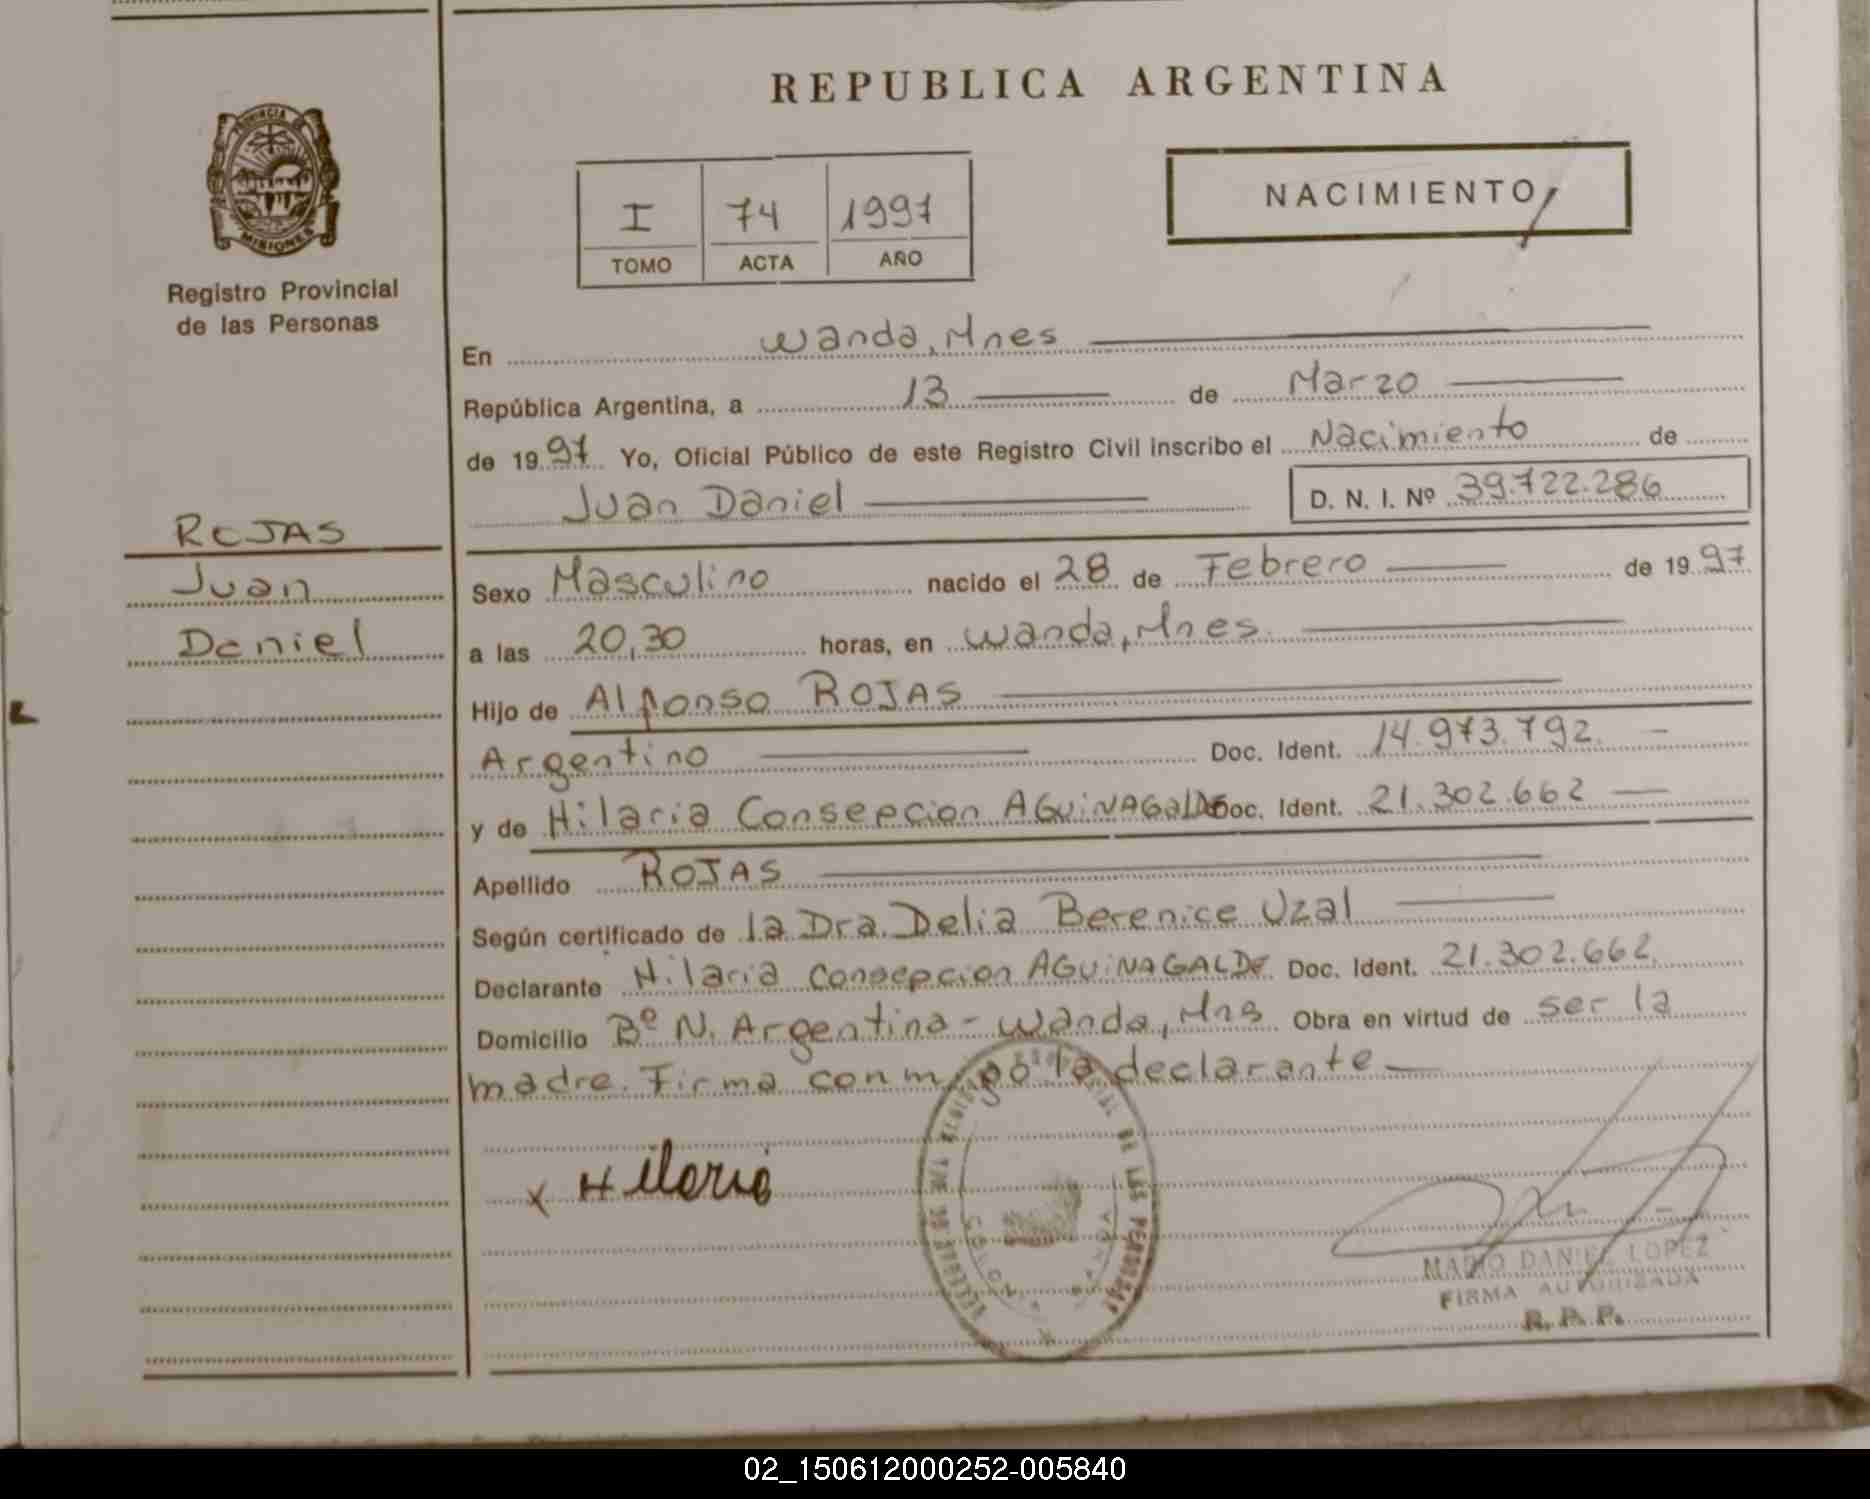 REPUBLICA ARGENTINA
PROVINCIA DE
MISIONES
Registro Provincial
de las Personas
I 74 1997
TOMO ACTA AÑO
NACIMIENTO
En Wanda, Mnes
República Argentina, a 13 de Marzo
de 1997 Yo, Oficial Público de este Registro Civil inscribo el Nacimiento de
Juan Daniel D. N. I. Nº 39.722.286
ROJAS
Juan
Daniel
Sexo Masculino nacido el 28 de Febrero de 1997
a las 20,30 horas, en Wanda, Mnes.
Hijo de Alfonso ROJAS
Argentino Doc. Ident. 14.973.792.
y de Hilaria Consepcion AGUINAGALDE Doc. Ident. 21.302.662
Apellido ROJAS
Según certificado de la Dra. Delia Berenice Uzal
Declarante Hilaria Consepcion AGUINAGALDE Doc. Ident. 21.302.662.
Domicilio Bº N. Argentina - Wanda, Mns Obra en virtud de ser la
madre. Firma conmigo la declarante
x Hilaria
DE LAS PERSONAS
MARIO DANIEL LOPEZ
FIRMA AUTORIZADA
R. P. P.
02_150612000252-005840